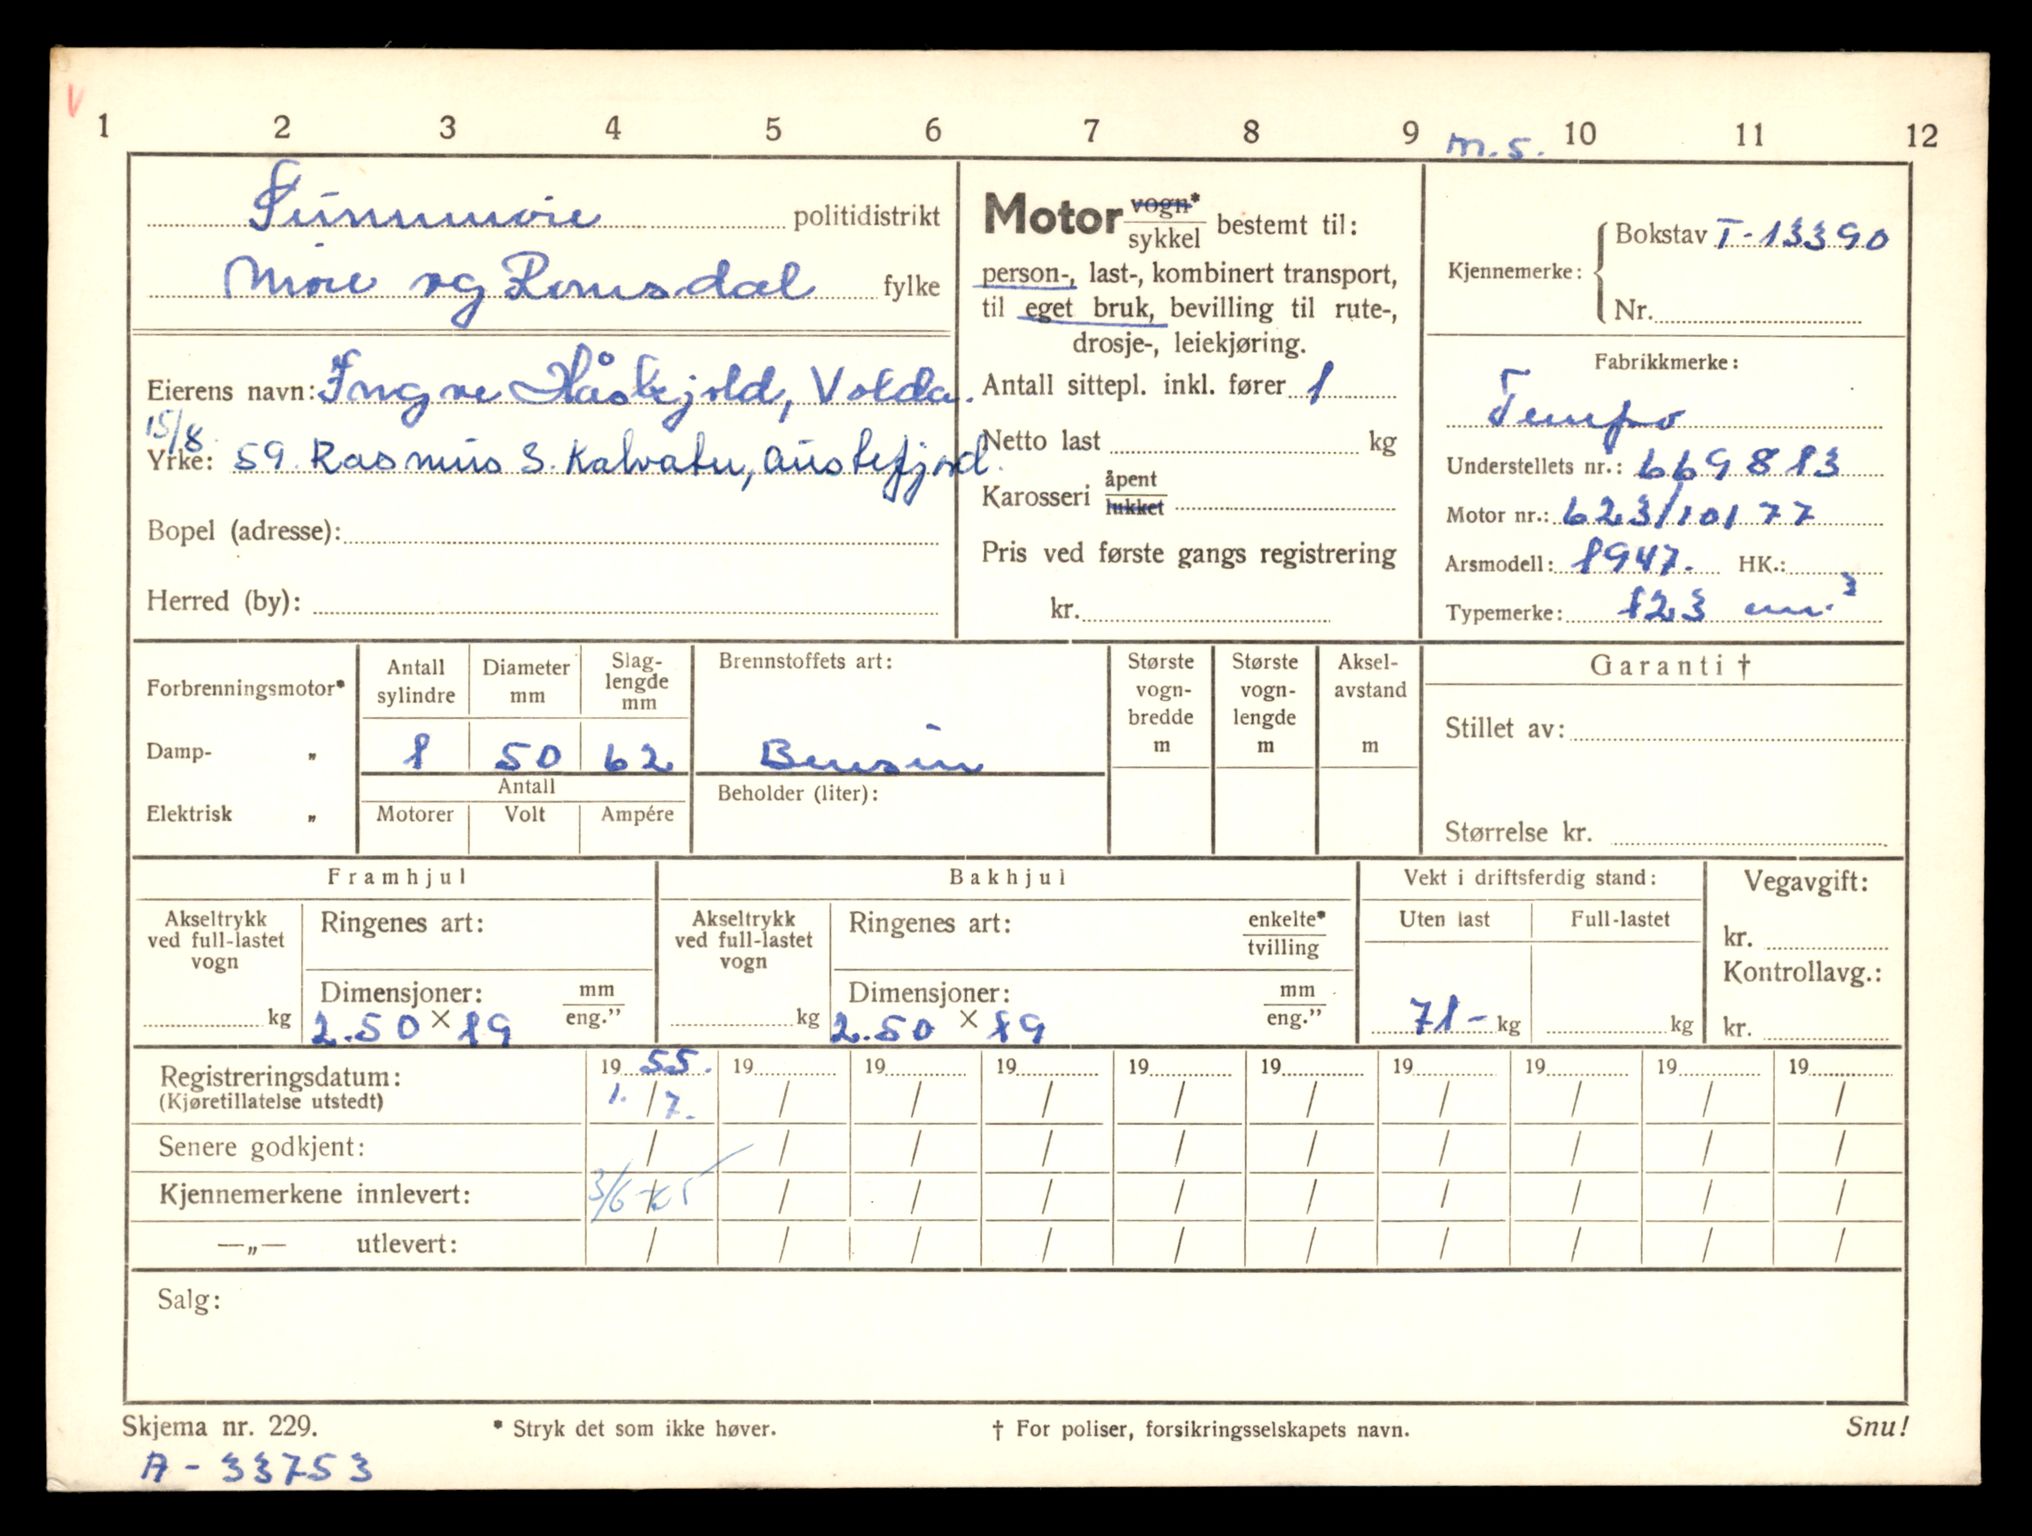 V
1 2 3 4 5 6 7 8 9 m.s. 10 11 12
Sunnmøre politidistrikt
Møre og Romsdal fylke
Eierens navn: Yngve Håskjold, Volda.
15/8
Yrke: 59. Rasmus S. Kalvatn, Austefjord.
Bopel (adresse):
Herred (by):
Motor vogn* sykkel bestemt til:
person-, last-, kombinert transport,
til eget bruk, bevilling til rute-,
drosje-, leiekjøring.
Antall sittepl. inkl. fører 1
Netto last kg
Karosseri åpent lukket
Pris ved første gangs registrering
kr.
Kjennemerke: Bokstav T-13390
Nr.
Fabrikkmerke:
Tempo
Understellets nr.: 669813
Motor nr.: 623/10177
Arsmodell: 1947. HK.:
Typemerke: 123 cm.³
Forbrenningsmotor*
Damp- „
Elektrisk „
Antall sylindre
1
Diameter mm
50
Slag-
lengde
mm
62
Antall
Motorer Volt Ampére
Brennstoffets art:
Bensin
Beholder (liter):
Største
vogn-
bredde
m
Største
vogn-
lengde
m
Aksel-
avstand
m
Garanti †
Stillet av:
Størrelse kr.
Framhjul
Akseltrykk
ved full-lastet
vogn
kg
Ringenes art:
Dimensjoner: mm eng.”
2.50 × 19
Bakhjul
Akseltrykk
ved full-lastet
vogn
kg
Ringenes art: enkelte* tvilling
Dimensjoner: mm eng.”
2.50 × 19
Vekt i driftsferdig stand:
Uten last Full-lastet
71- kg kg
Vegavgift:
kr.
Kontrollavg.:
kr.
Registreringsdatum: 19 55. 19 19 19 19 19 19 19 19 19
(Kjøretillatelse utstedt) 1. / 7. / / / / / / / / /
Senere godkjent: / / / / / / / / / /
Kjennemerkene innlevert: 3/6- / / / / / / / / /
—„— utlevert: / / / / / / / / / /
Salg:
Skjema nr. 229. * Stryk det som ikke høver. † For poliser, forsikringsselskapets navn. Snu!
A - 33753